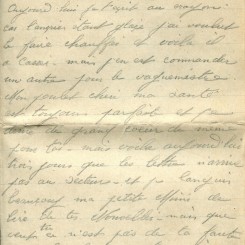 aujourd'hui je t'écrit au crayon
car l'encrier étant glacé j'ai voulut
le faire chauffer et voilà il
a cassé - mais j'en est commander
un autre pour le vaguemestre
Mon petit chéri ma santé
est toujours parfaite et pas
de grand coeur de même
pour toi - mais voilà aujourd'hui
trois jours que les lettres n'arrive
pas au secteur - et je languis
beaucoup ma petite de
lire de tes nouvelles - mais que
veux tu ce n'est pas de ta faute